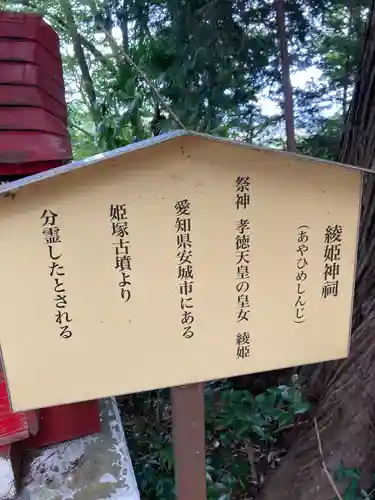 綾姫神祠
（あやひめしんじ）
祭神 孝徳天皇の皇女 綾姫
愛知県安城市にある
姫塚古墳より
分霊したとされる